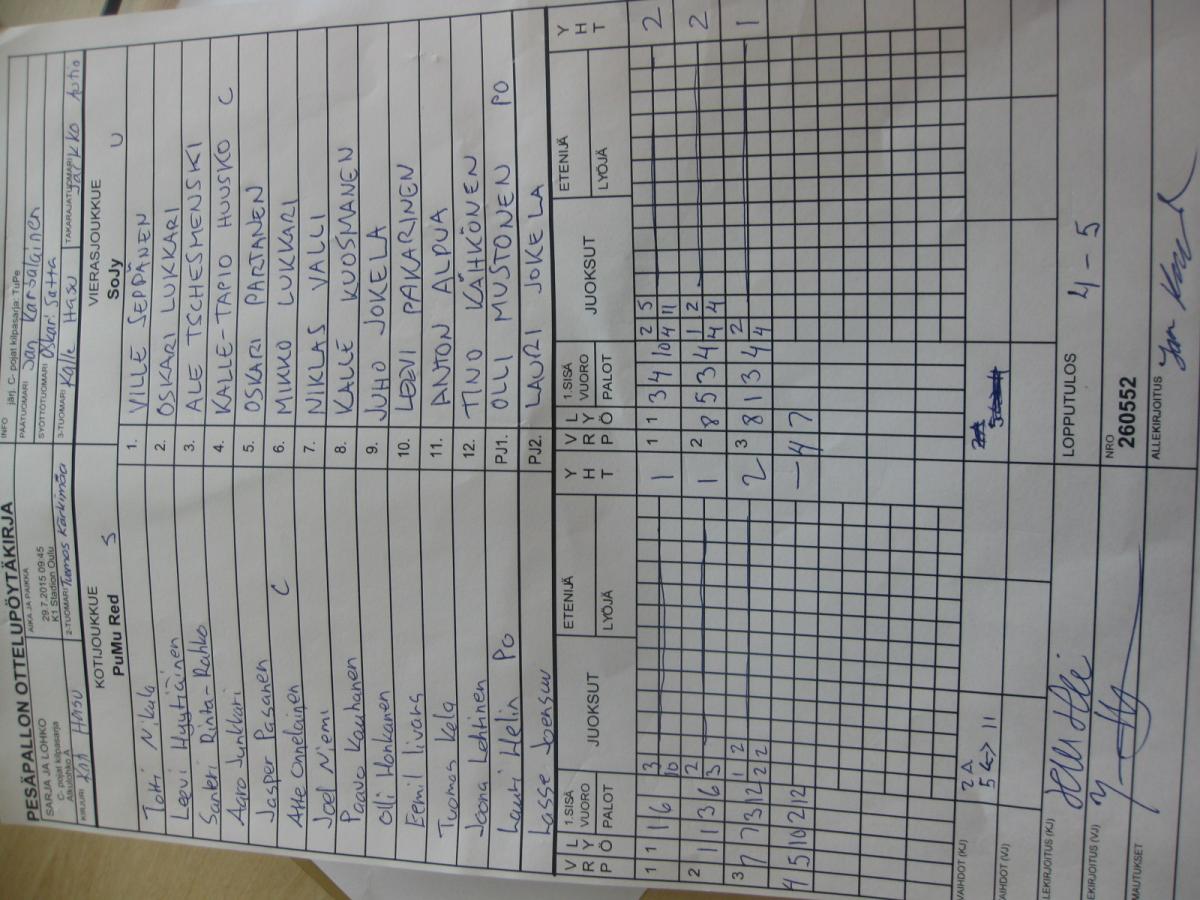 PESÄPALLON OTTELUPÖYTÄKIRJA
SARJA JA LOHKO
C- pojat kilpasarja
Alkulohko A
AIKA JA PAIKKA
29.7.2015 09:45
K1 Stadion Oulu
INFO järj. C- pojat kilpasarja: TuPe
PÄÄTUOMARI Jan Karsalainen
SYÖTTÖTUOMARI Oskari Satta
KIRJURI Hasu
2-TUOMARI Tuomas Kärkimaa
3-TUOMARI Kalle Hasu
TAKARAJATUOMARI Jarkko Autio
KOTIJOUKKUE
PuMu Red S
VIERASJOUKKUE
SoJy U
Totti Nikula 1. VILLE SEPPÄNEN
Leevi Hyytiäinen 2. OSKARI LUKKARI
Santeri Rinta-Rahko 3. ALE TSCHESMENSKI
Aaro Junkkari 4. KALLE-TAPIO HUUSKO C
Jasper Pasanen 5. OSKARI PARTANEN
Atte Onnelainen C 6. MIKKO LUKKARI
Joel Niemi 7. NIKLAS VALLI
Paavo Kauhanen 8. KALLE KUOSMANEN
Olli Honkanen 9. JUHO JOKELA
Eemil Iivans 10. LEEVI PAKARINEN
Tuomas Kela 11. ANTON ALPUA
Joona Lehtinen 12. TINO KÄHKÖNEN
Lauri Helin PO PJ1. OLLI MUSTONEN PO
Lasse Joensuu PJ2. LAURI JOKELA
V R P L Y Ö 1.SISÄ VUORO PALOT JUOKSUT ETENIJÄ LYÖJÄ Y H T
V R P L Y Ö 1.SISÄ VUORO PALOT JUOKSUT ETENIJÄ LYÖJÄ Y H T
1 1 1 6 3 10 1
1 1 3 4 10 2 4 5 11 2
2 1 1 3 6 2 3 1
2 8 5 3 4 1 4 2 4 2
3 7 7 3 12 1 2 2 2 2
3 8 1 3 4 2 4 1
4 5 10 2 12 —
4 7
VAIHDOT (KJ) 2A
5 <-> 11
VAIHDOT (VJ)
ALLEKIRJOITUS (KJ)
LOPPUTULOS 4 - 5
ALLEKIRJOITUS (VJ)
NRO
260552
HUOMAUTUKSET
ALLEKIRJOITUS